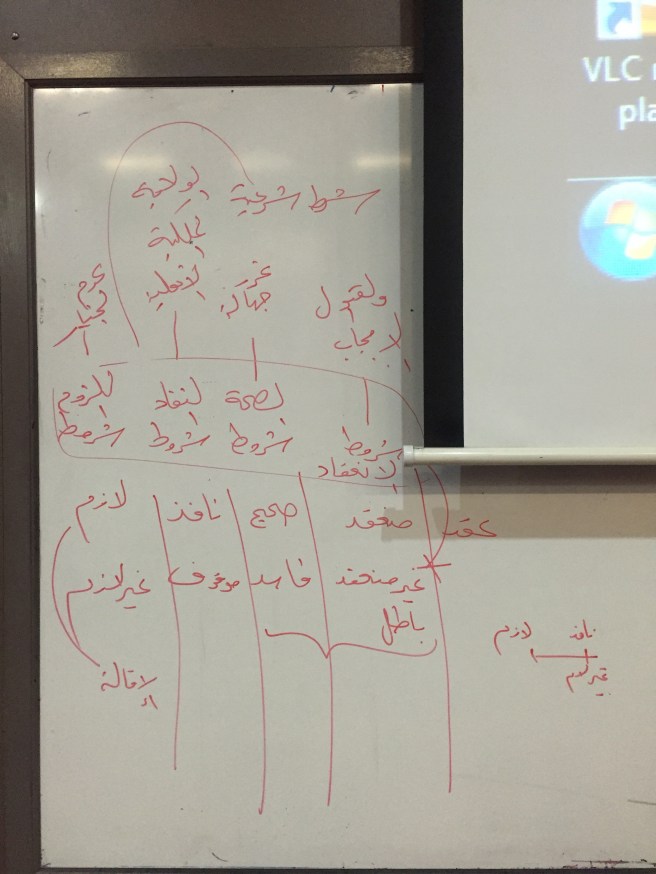 شروط شرعية
الولاية
الملكية
الاهلية
غرر
جهالة
والقبول
الايجاب
عدم
الخيار
شروط
الانعقاد
الصحة
شروط
النفاذ
شروط
اللزوم
شروط
عقد
منعقد
صحيح
نافذ
لازم
غير منعقد
فاسد
موقوف
غير لازم
باطل
الإقالة
نافذ
لازم
غير لازم
VLC
pla